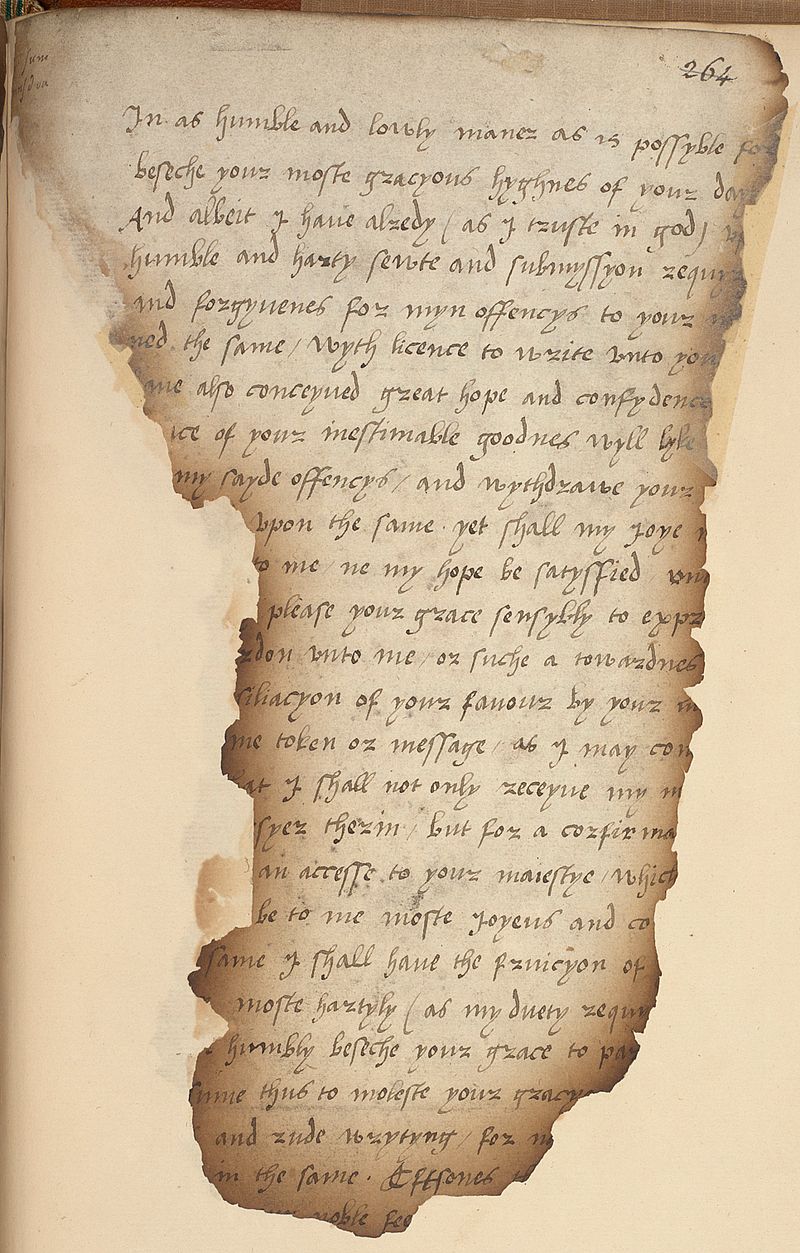 264
In as humble and lowly maner as is possyble for
beseche your moste gracyous hyghnes of your day
And albeit I have alredy (as I truste in god)
humble and harty sewte and submyssyon requyr
and forgyvenes for myn offencys to your
ned the same / wyth licence to write vnto you
ave also conceyved great hope and confydence
ice of your inestimable goodnes wyll lyke
my sayde offencys / and wythdrawe your
vpon the same. yet shall my Joye
to me / ne my hope be satysfied
please your grace sensybly to expr
rdon vnto me / or suche a towardnes
siliacyon of your favour by your
me token or message / as I may con
at I shall not only receyve my m
syer therin / but for a confirma
an accesse to your maiestye / which
be to me moste Joyeus and co
same I shall have the fruicyon of
moste hartyly (as my duety requyr
humbly beseche your grace to par
sume thus to moleste your gracyo
and rude wrytyng / for m
in the same. Eftsones
noble fee